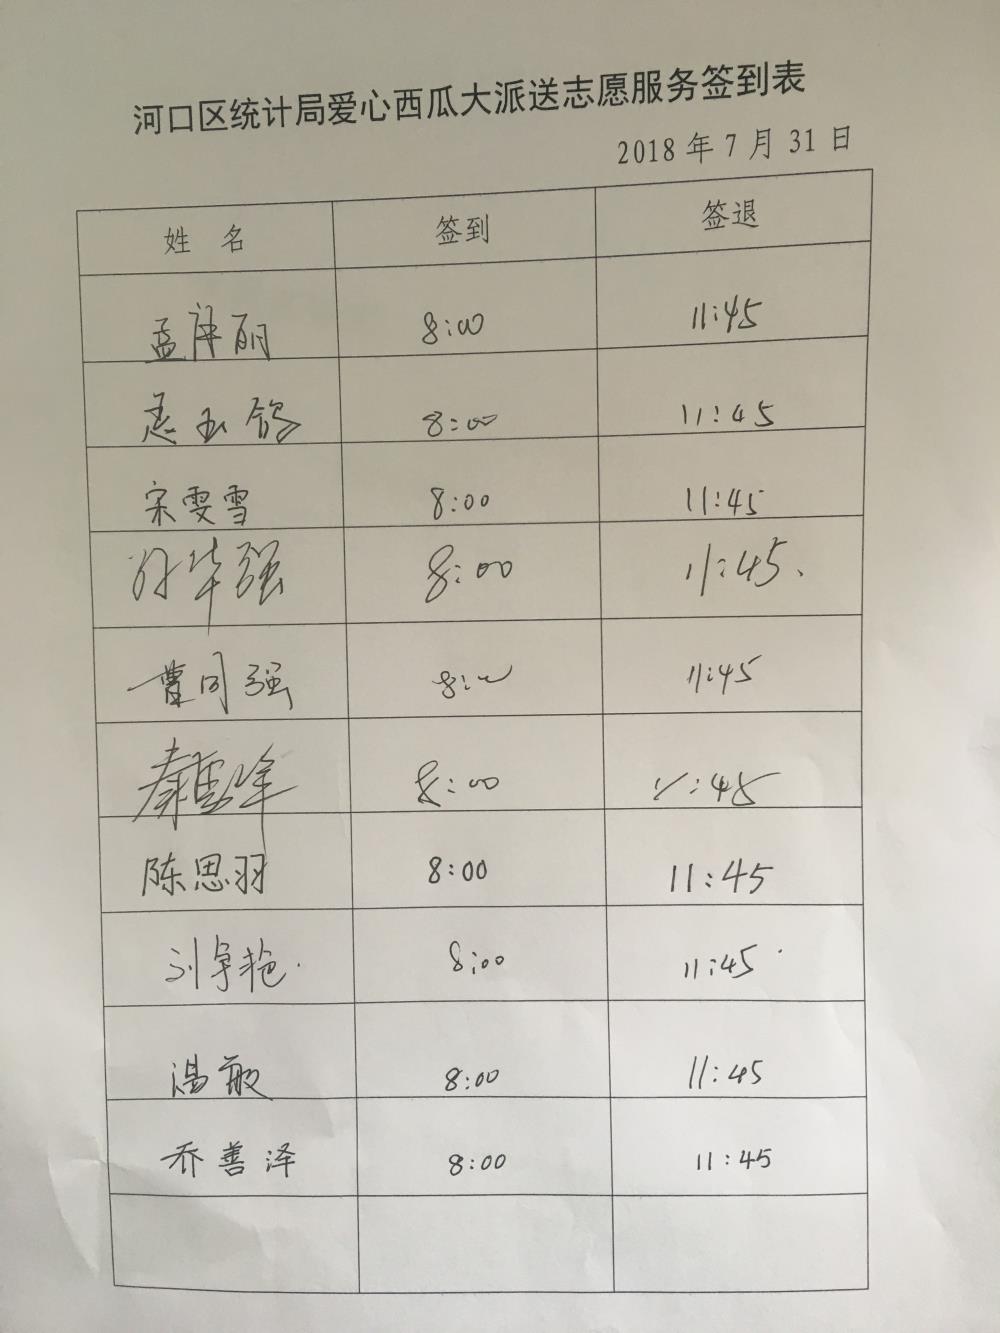 河口区统计局爱心西瓜大派送志愿服务签到表
2018 年 7 月 31 日
姓 名 签到 签退
孟 丽 8:00 11:45
玉 8:00 11:45
宋雯雪 8:00 11:45
华强 8:00 11:45
曹同强 8:00 11:45
秦 峰 8:00 11:45
陈思羽 8:00 11:45
刘 艳 8:00 11:45
温敏 8:00 11:45
乔善泽 8:00 11:45